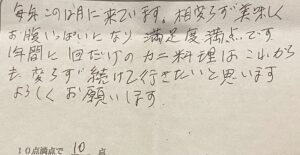 毎年この12月に来ています。相変らず美味しく
お腹いっぱいになり満足度満点です
1年間に1回だけのカニ料理はこれから
も変らず続けて行きたいと思います
よろしくお願いします
10点満点で 10 点